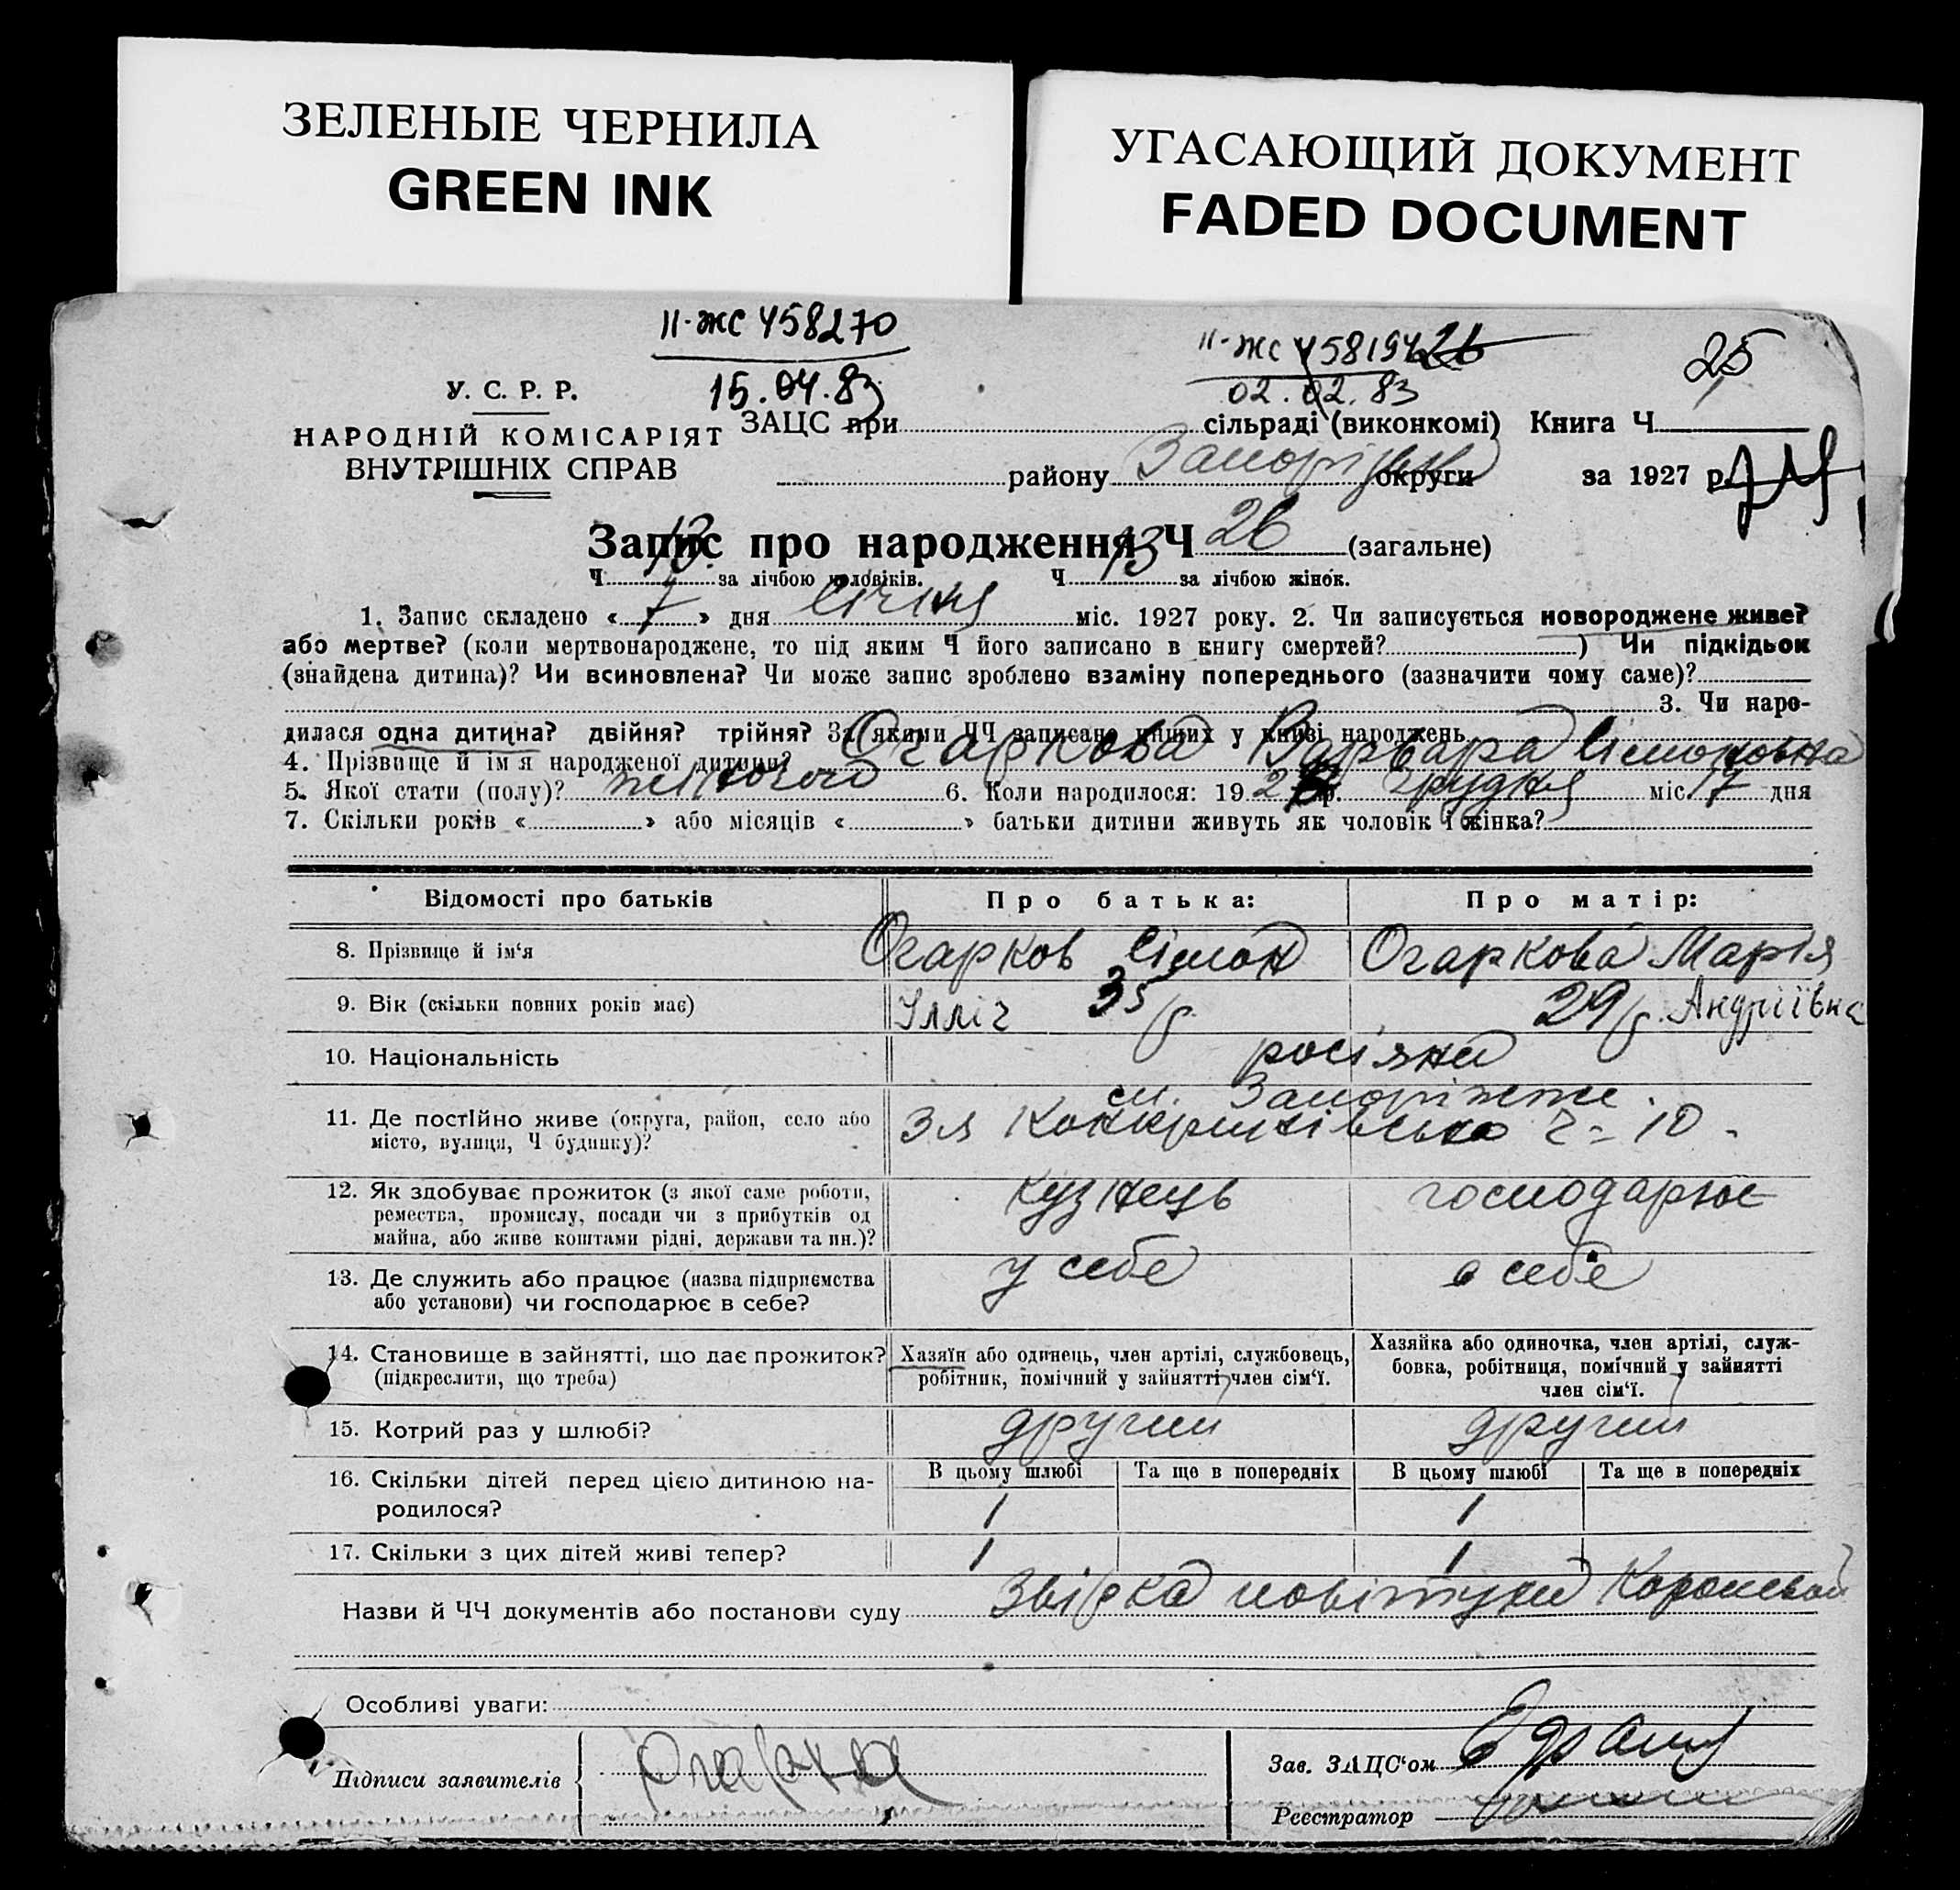 ЗЕЛЕНЫЕ ЧЕРНИЛА
GREEN INK
УГАСАЮЩИЙ ДОКУМЕНТ
FADED DOCUMENT
II-ЖС 458270
15.04.83
II-ЖС 458194 26
02.02.83
25
У. С. Р. Р.
НАРОДНІЙ КОМІСАРІЯТ
ВНУТРІШНІХ СПРАВ
ЗАЦС при сільраді (виконкомі) Книга Ч
району округи за 1927 р.
Запис про народження Ч 26 (загальне)
Ч 13 за лічбою чоловіків. Ч 13 за лічбою жінок.
1. Запис складено «7» дня Січня міс. 1927 року. 2. Чи записується новороджене живе?
або мертве? (коли мертвонароджене, то під яким Ч його записано в книгу смертей? ) Чи підкідьок
(знайдена дитина)? Чи всиновлена? Чи може запис зроблено взаміну попереднього (зазначити чому саме)?
3. Чи наро-
дилася одна дитина? двійня? трійня? За якими ЧЧ записано инших у книзі народжень
4. Прізвище й ім'я народженої дитини? Огаркова Варвара Сімоновна
5. Якої стати (полу)? жіночого 6. Коли народилося: 192 р. Грудня міс. 17 дня
7. Скільки років « » або місяців « » батьки дитини живуть як чоловік і жінка?
Відомості про батьків Про батька: Про матір:
8. Прізвище й ім'я Огарков Сімон Огаркова Марія
9. Вік (скільки повних років має) Ілліч 35 р. 29 р. Андріївна
10. Національність росіяни
11. Де постійно живе (округа, район, село або м. Запоріжже.
місто, вулиця, Ч будинку)? Ч - 10 -
12. Як здобуває прожиток (з якої саме роботи, кузнець господарює
ремества, промислу, посади чи з прибутків од
майна, або живе коштами рідні, держави та ин.)?
13. Де служить або працює (назва підприємства у себе в себе
або установи) чи господарює в себе?
14. Становище в зайнятті, що дає прожиток? Хазяїн або одинець, член артілі, службовець, Хазяйка або одиночка, член артілі, служ-
(підкреслити, що треба) робітник, помічний у зайнятті член сім'ї. бовка, робітниця, помічний у зайнятті
член сім'ї.
15. Котрий раз у шлюбі? другий другий
16. Скільки дітей перед цією дитиною на- В цьому шлюбі Та ще в попередніх В цьому шлюбі Та ще в попередніх
родилося? 1 1
17. Скільки з цих дітей живі тепер? 1 1
Назви й ЧЧ документів або постанови суду повітухи
Особливі уваги:
Підписи заявителів
Зав. ЗАЦС'ом
Реєстратор